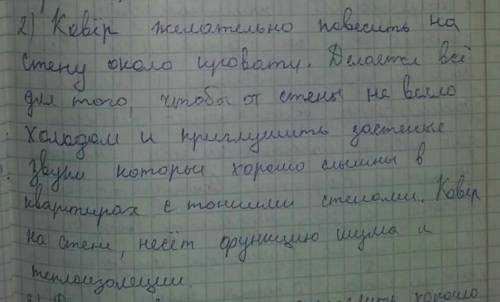 2) Ковёр желательно повесить на
стену около кровати. Делается всё
для того, чтобы от стены не веяло
холодом и приглушить застенные
звуки которые хорошо слышны в
квартирах с тонкими стенами. Ковёр
на стене, несёт функцию шума и
теплоизоляции.
хорошо